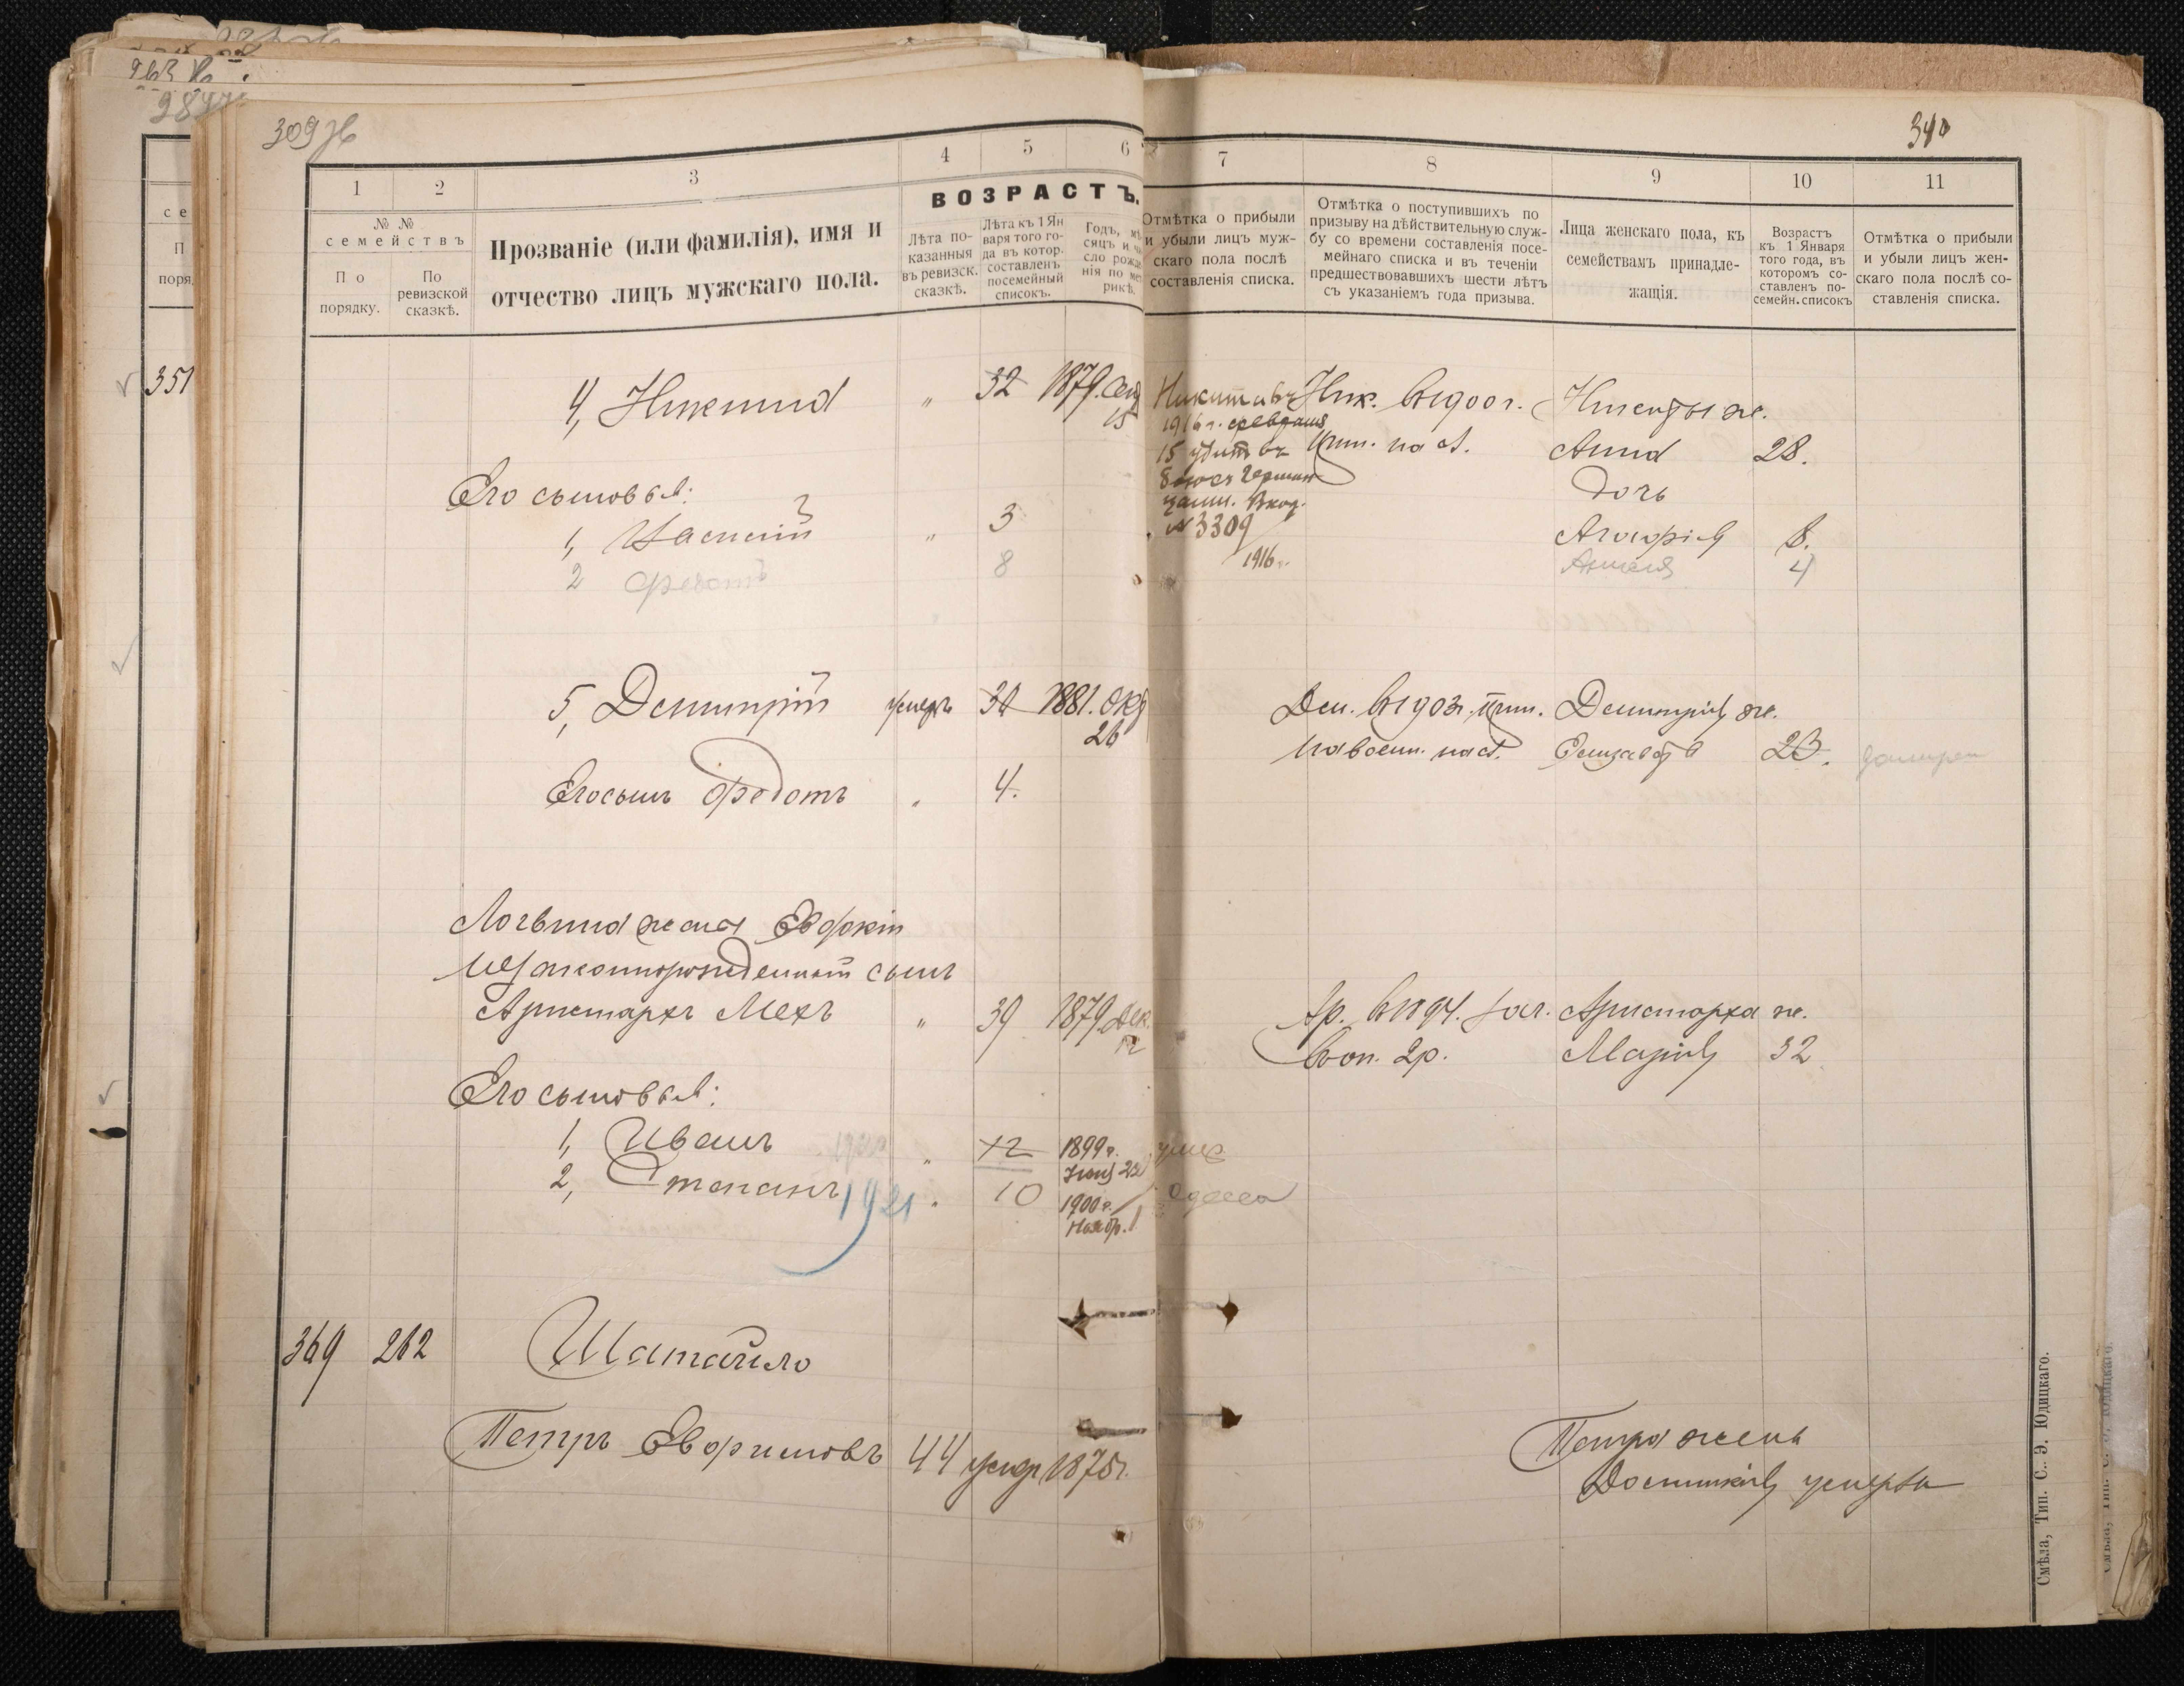 309 об
340
1 2 3 4 5 6 7 8 9 10 11
№ №
семействъ
По порядку.
По ревизской сказкѣ.
Прозваніе (или фамилія), имя и
отчество лицъ мужскаго пола.
ВОЗРАСТЪ.
Лѣта по-
казанныя
въ ревизск.
сказкѣ.
Лѣта къ 1 Ян
варя того го-
да въ котор.
составленъ
посемейный
списокъ.
Годъ, мѣ
сяцъ и чи
сло рожде
нія по мет
рикѣ.
Отмѣтка о прибыли
и убыли лицъ муж-
скаго пола послѣ
составленія списка.
Отмѣтка о поступившихъ по
призыву на дѣйствительную служ-
бу со времени составленія посе-
мейнаго списка и въ теченіи
предшествовавшихъ шести лѣтъ
съ указаніемъ года призыва.
Лица женскаго пола, къ
семействамъ принадле-
жащія.
Возрастъ
къ 1 Января
того года, въ
которомъ со-
ставленъ по-
семейн. списокъ
Отмѣтка о прибыли
и убыли лицъ жен-
скаго пола послѣ со-
ставленія списка.
351
4, Никита " 32 1879. Сен
15
Никита въ
1916 г. февраля
15 убитъ въ
бояхъ Герман
цами. Вход.
№ 3309
1916 г.
Ник. въ 1900 г.
прин. на сл.
Никиты ж.
Анна 28.
дочь
Агафія 8.
4
Его сыновья:
1, Василій " 3
2 Федотъ 8
5, Димитрій умеръ 30 1881. Окт
26
Дим. въ 1903 г. прин.
на воен. на сл.
Димитрія ж.
Елизавета 23.
Его сынъ Федотъ " 4.
Логвина жена Евфокія
незаконнорожденный сынъ
Аристархъ Мехъ " 39 1879. Дек.
12
Ар. въ 1894. зач.
въ оп. 2 р.
Аристарха ж.
Марія 32
Его сыновья:
1, Иванъ " 12 1899 г. умер
22
2, Степанъ 1921 " 10 1900 г. Одесса
Ноябр. 1
369 262 Шатайло
Петръ Ефримовъ 44 умер 1875 г.
Петра жена
Домникія умерла
Смѣла, Тип. С. Э. Юдицкаго.